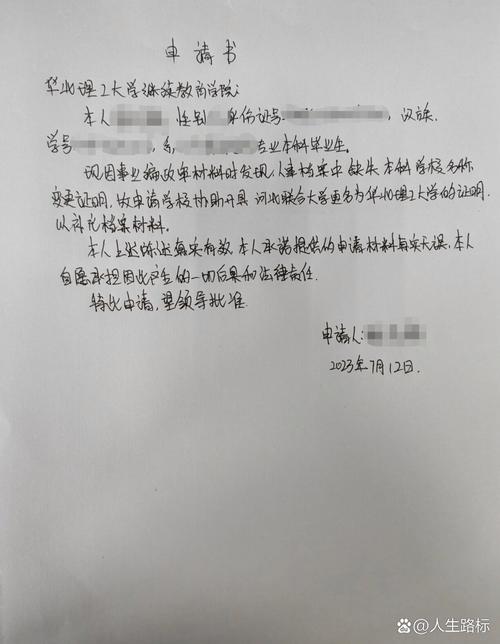 申请书
华北理工大学继续教育学院:
本人 性别 身份证号 ,汉族
学号 ,系 专业本科毕业生.
现因事业编政审材料时发现,人事档案中缺失本科学校名称
变更证明,故申请学校协助开具 河北联合大学更名为华北理工大学的证明,
以补充档案材料.
本人上述陈述真实有效,本人承诺提供的申请材料真实无误,本人
自愿承担因此产生的一切后果和法律责任.
特此申请,望领导批准.
申请人:
2023年7月12日.
@人生路标